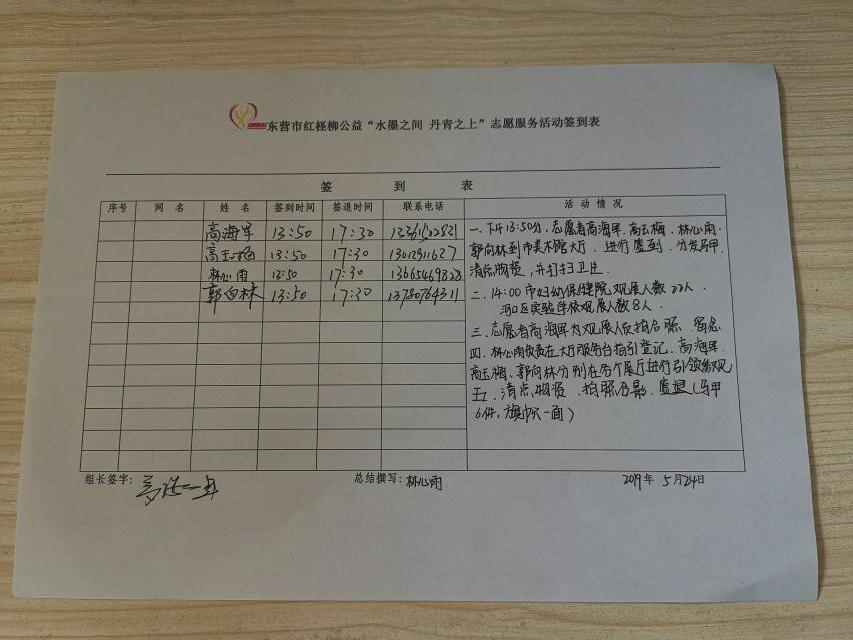 东营市红柽柳公益“水墨之间 丹青之上”志愿服务活动签到表
签 到 表
序号 网 名 姓 名 签到时间 签退时间 联系电话 活 动 情 况
高海军 13:50 17:30
高玉梅 13:50 17:30 13012911627
林心雨 13:50 17:30 13665469828
郭向林 13:50 17:30 13780764311
一、下午13:50分,志愿者高海军、高玉梅、林心雨、
郭向林到市美术馆大厅、进行签到、分发马甲、
清点物资,并打扫卫生.
二、14:00市妇幼保健院观展人数22人.
河口区实验学校观展人数8人.
三、志愿者高海军为观展人员拍合照、留念
四、林心雨负责在大厅服务台指引登记、高海军、
高玉梅、郭向林分别在各个展厅进行引领参观
五、清点物资、拍照合影、签退(马甲
6件,旗帜一面)
组长签字: 高海军 总结撰写: 林心雨 2019年 5月24日